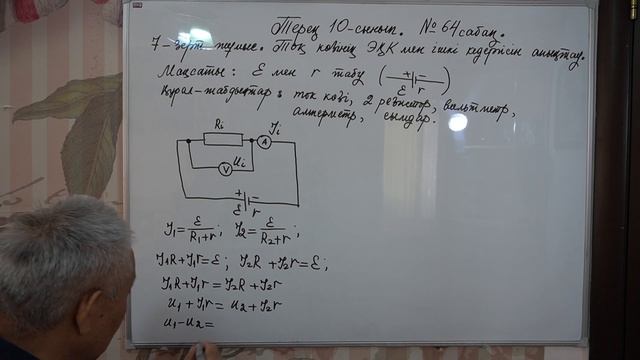 Терең 10-сынып. №64 сабақ.
7-зерт. жұмыс. Тоқ көзінің ЭҚК мен ішкі кедергісін анықтау.
Мақсаты: ℰ мен r табу ( + − )
ℰ r
Құрал-жабдықтар: ток көзі, 2 резистор, вольтметр,
амперметр, сымдар.
Ri Ji
A
V Ui
+ −
ℰ r
J1=ℰ/(R1+r); J2=ℰ/(R2+r);
J1R+J1r=ℰ; J2R+J2r=ℰ;
J1R+J1r=J2R+J2r
U1+J1r=U2+J2r
U1−U2=